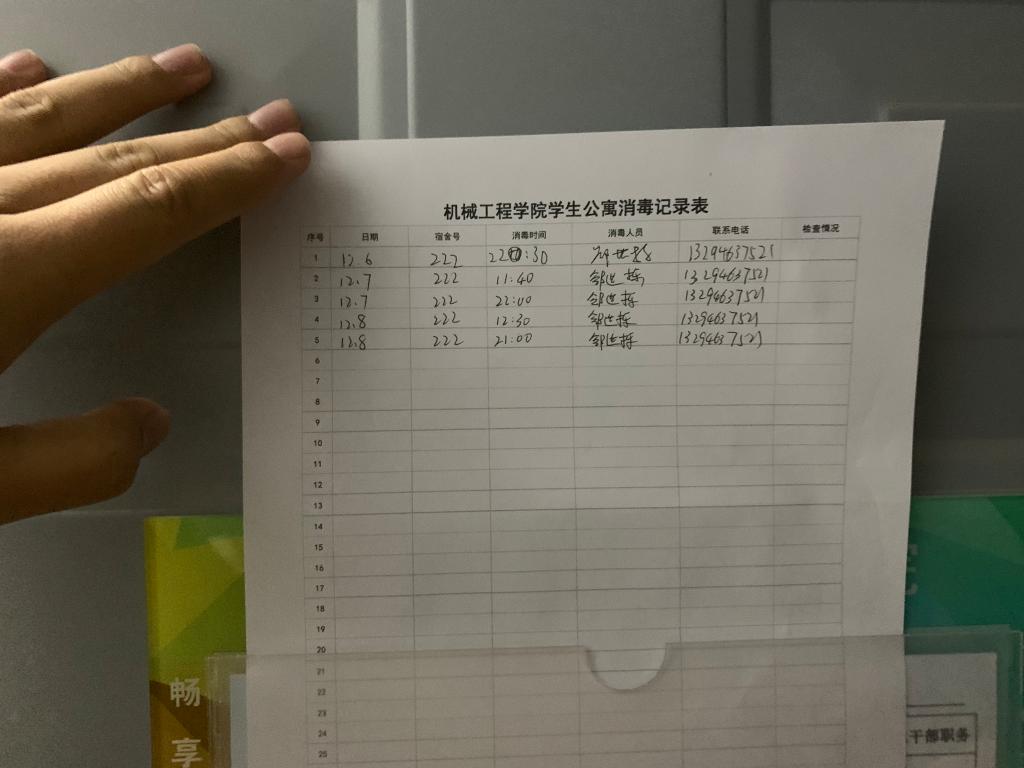 机械工程学院学生公寓消毒记录表
序号 日期 宿舍号 消毒时间 消毒人员 联系电话 检查情况
1 12.6 222 22:30 13294637521
2 12.7 222 11:40 13294637521
3 12.7 222 22:00 13294637521
4 12.8 222 12:30 13294637521
5 12.8 222 21:00 13294637521
6
7
8
9
10
11
12
13
14
15
16
17
18
19
20
21
22
23
24
25
畅
享
干部职务